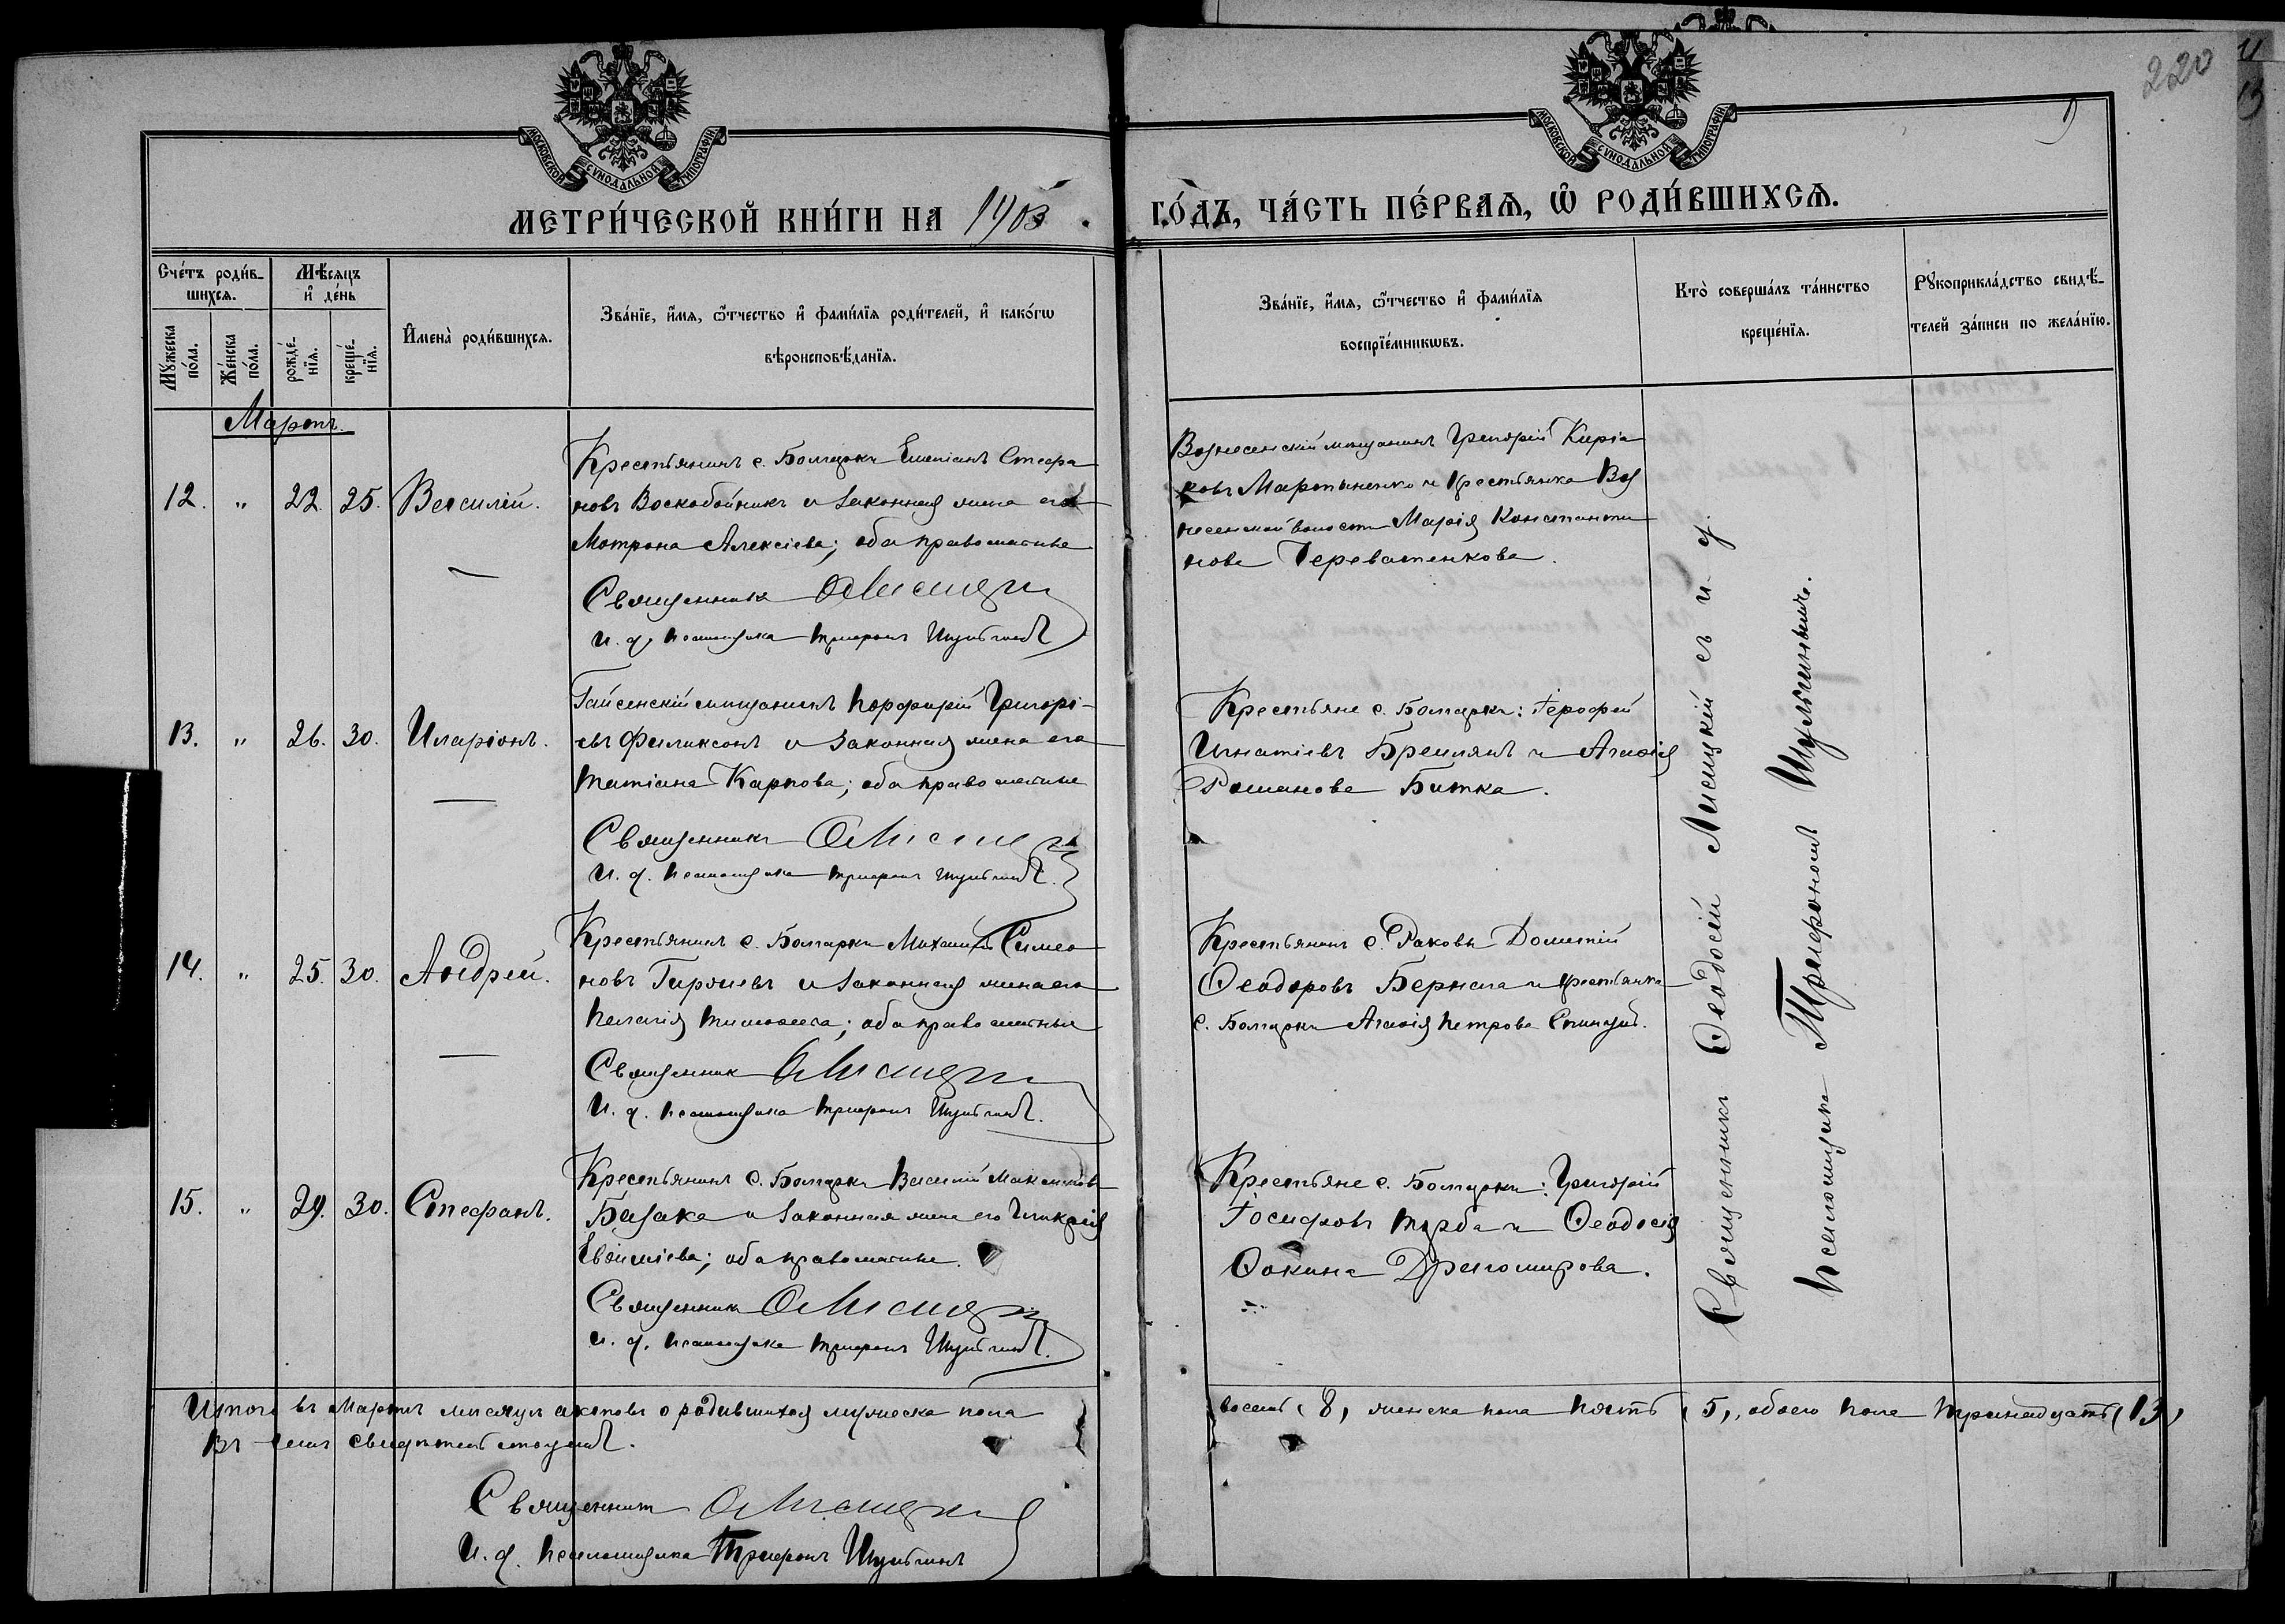 220
МОСКОВСКОЙ СѴНОДАЛЬНОЙ ТИПОГРАФІИ
МОСКОВСКОЙ СѴНОДАЛЬНОЙ ТИПОГРАФІИ
МЕТРИ́ЧЕСКОЙ КНИ́ГИ НА 1903
ГО́ДЪ, ЧА́СТЬ ПЕ́РВАѦ, Ѡ РОДИ́ВШИХСѦ.
Сче́тъ роди́в-
шихсѧ.
Мꙋжеска по́ла.
Же́нска по́ла.
Мѣ́сѧцъ
и҆ де́нь
рожде́-
нїѧ.
креще́-
нїѧ.
И҆мена̀ роди́вшихсѧ.
Зва́нїе, и҆́мѧ, ѻ҆́тчество и҆ фами́лїѧ роди́телей, и҆ како́гѡ
вѣроисповѣ́данїѧ.
Зва́нїе, и҆́мѧ, ѻ҆́тчество и҆ фами́лїѧ
воспрїе́мникѡвъ.
Кто̀ соверша́лъ та́инство
креще́нїѧ.
Рꙋкоприкла́дство свидѣ́-
телей за́писи по жела́нїю.
Мартъ.
12. " 22. 25. Василій.
Крестьянинъ с. Болгарки Емеліанъ Стефа
новъ Воскобойникъ и законная жена его
Мотрона Алексіева; оба православные
Священникъ Ѳ Лисицкій
И. д. псаломщика Трифонъ Шульгинъ
Вознесенскій мещанинъ Григорій Киріа
ковъ Мартыненко и крестьянка Воз
несенской волости Марія Константи
нова Череватенкова.
13. " 26. 30. Иларіонъ.
Гайсенскій мещанинъ Порфирій Григорі-
евъ Филиксонъ и законная жена его
Татіана Карпова; оба православные
Священникъ Ѳ Лисицкій
И. д. псаломщика Трифонъ Шульгинъ.
Крестьяне с. Болгарки: Іерофей
Игнатіевъ и Агаѳія
Романова Битка.
14. " 25. 30. Андрей.
Крестьянинъ с. Болгарки Михаилъ Симео
новъ и законная жена его
Пелагія; оба православные
Священникъ Ѳ Лисицкій
И. д. псаломщика Трифонъ Шульгинъ.
Крестьянинъ с. Раковы Дометій
Ѳеодоровъ и крестьянка
с. Болгарки Агаѳія Петрова
15. " 29. 30. Стефанъ.
Крестьянинъ с. Болгарки Василій
Базака и законная жена его
Евѳиміева; оба православные.
Священникъ Ѳ Лисицкій
И. д. псаломщика Трифонъ Шульгинъ.
Крестьяне с. Болгарки: Григорій
Іосифовъ Торба и Ѳеодосія
Ѳокина Драгомирова.
Священникъ Ѳеодосій Лисицкій съ и. д.
Псаломщика Трифономъ Шульгинымъ.
Итого въ Мартѣ мѣсяцѣ актовъ о родившихся мужеска пола
восемь (8), женска пола пять (5), обоего пола тринадцать (13)
въ чемъ свидѣтельствуемъ.
Священникъ Ѳ Лисицкій
И. д. псаломщика Трифонъ Шульгинъ